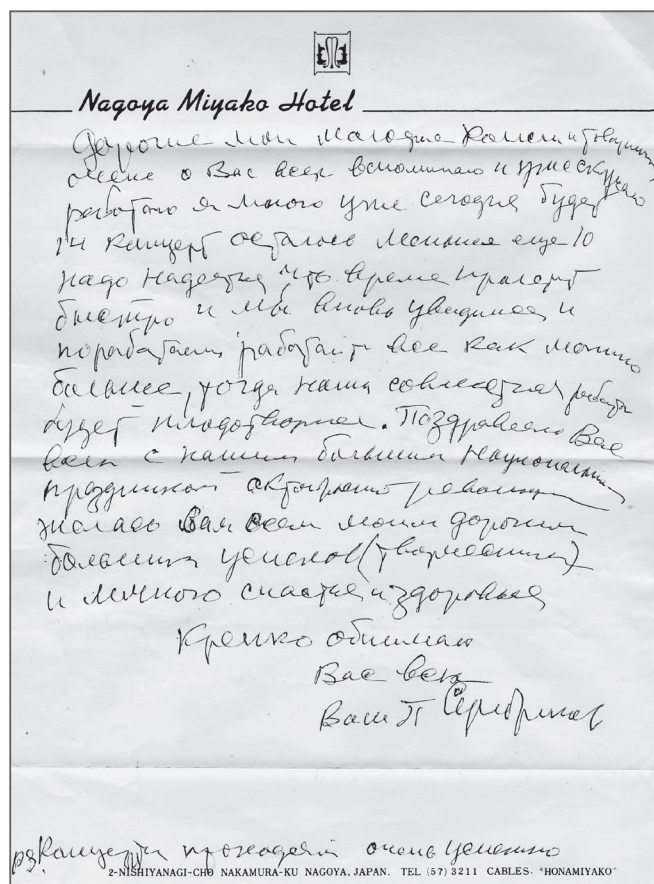 Nagoya Miyako Hotel
Дорогие мои молодые коллеги и товарищи
очень о Вас всех вспоминаю и уже скучаю
работаю я много уже сегодня будет
14 концерт осталось меньше еще 10
надо надеятся, что время пролетит
быстро и мы вновь увидимся и
поработаем работайте все как можно
больше, тогда наша совместная работа
будет плодотворная. Поздравляю Вас
всех с нашим большим национальным
праздником октябрьской революции
желаю Вам всем моим дорогим
больших успехов (творческих)
и личного счастья и здоровья
Крепко обнимаю
Вас всех
Ваш П Серебряков
Концерты проходят очень успешно
2-NISHIYANAGI-CHO NAKAMURA-KU NAGOYA, JAPAN. TEL (57) 3211 CABLES. "HONAMIYAKO"